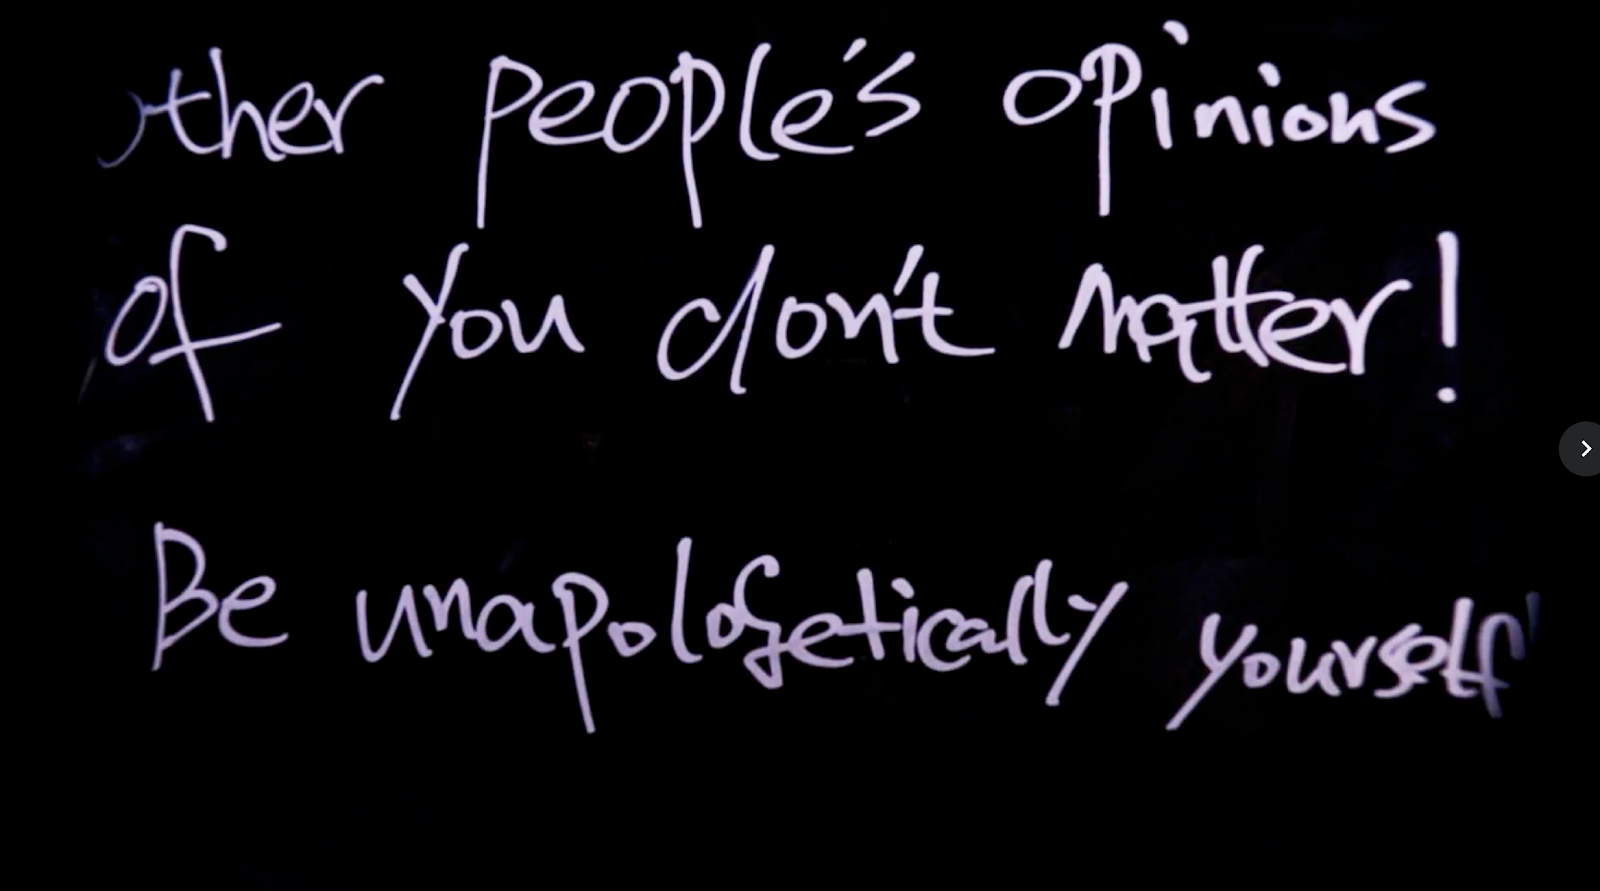 other people's opinions
of you don't matter!
Be unapologetically yourself!